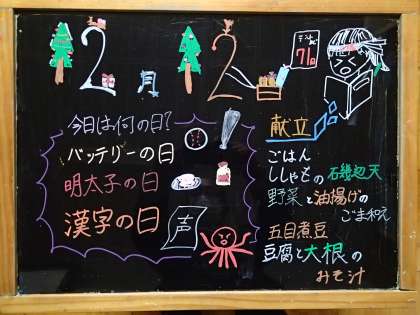 12月12
テストまで
71日
今日は何の日?
バッテリーの日
明太子の日
漢字の日
声
献立
ごはん
ししゃもの石幾辺天
野菜と油揚げの
ごま和え
五目煮豆
豆腐と大根の
みそ汁